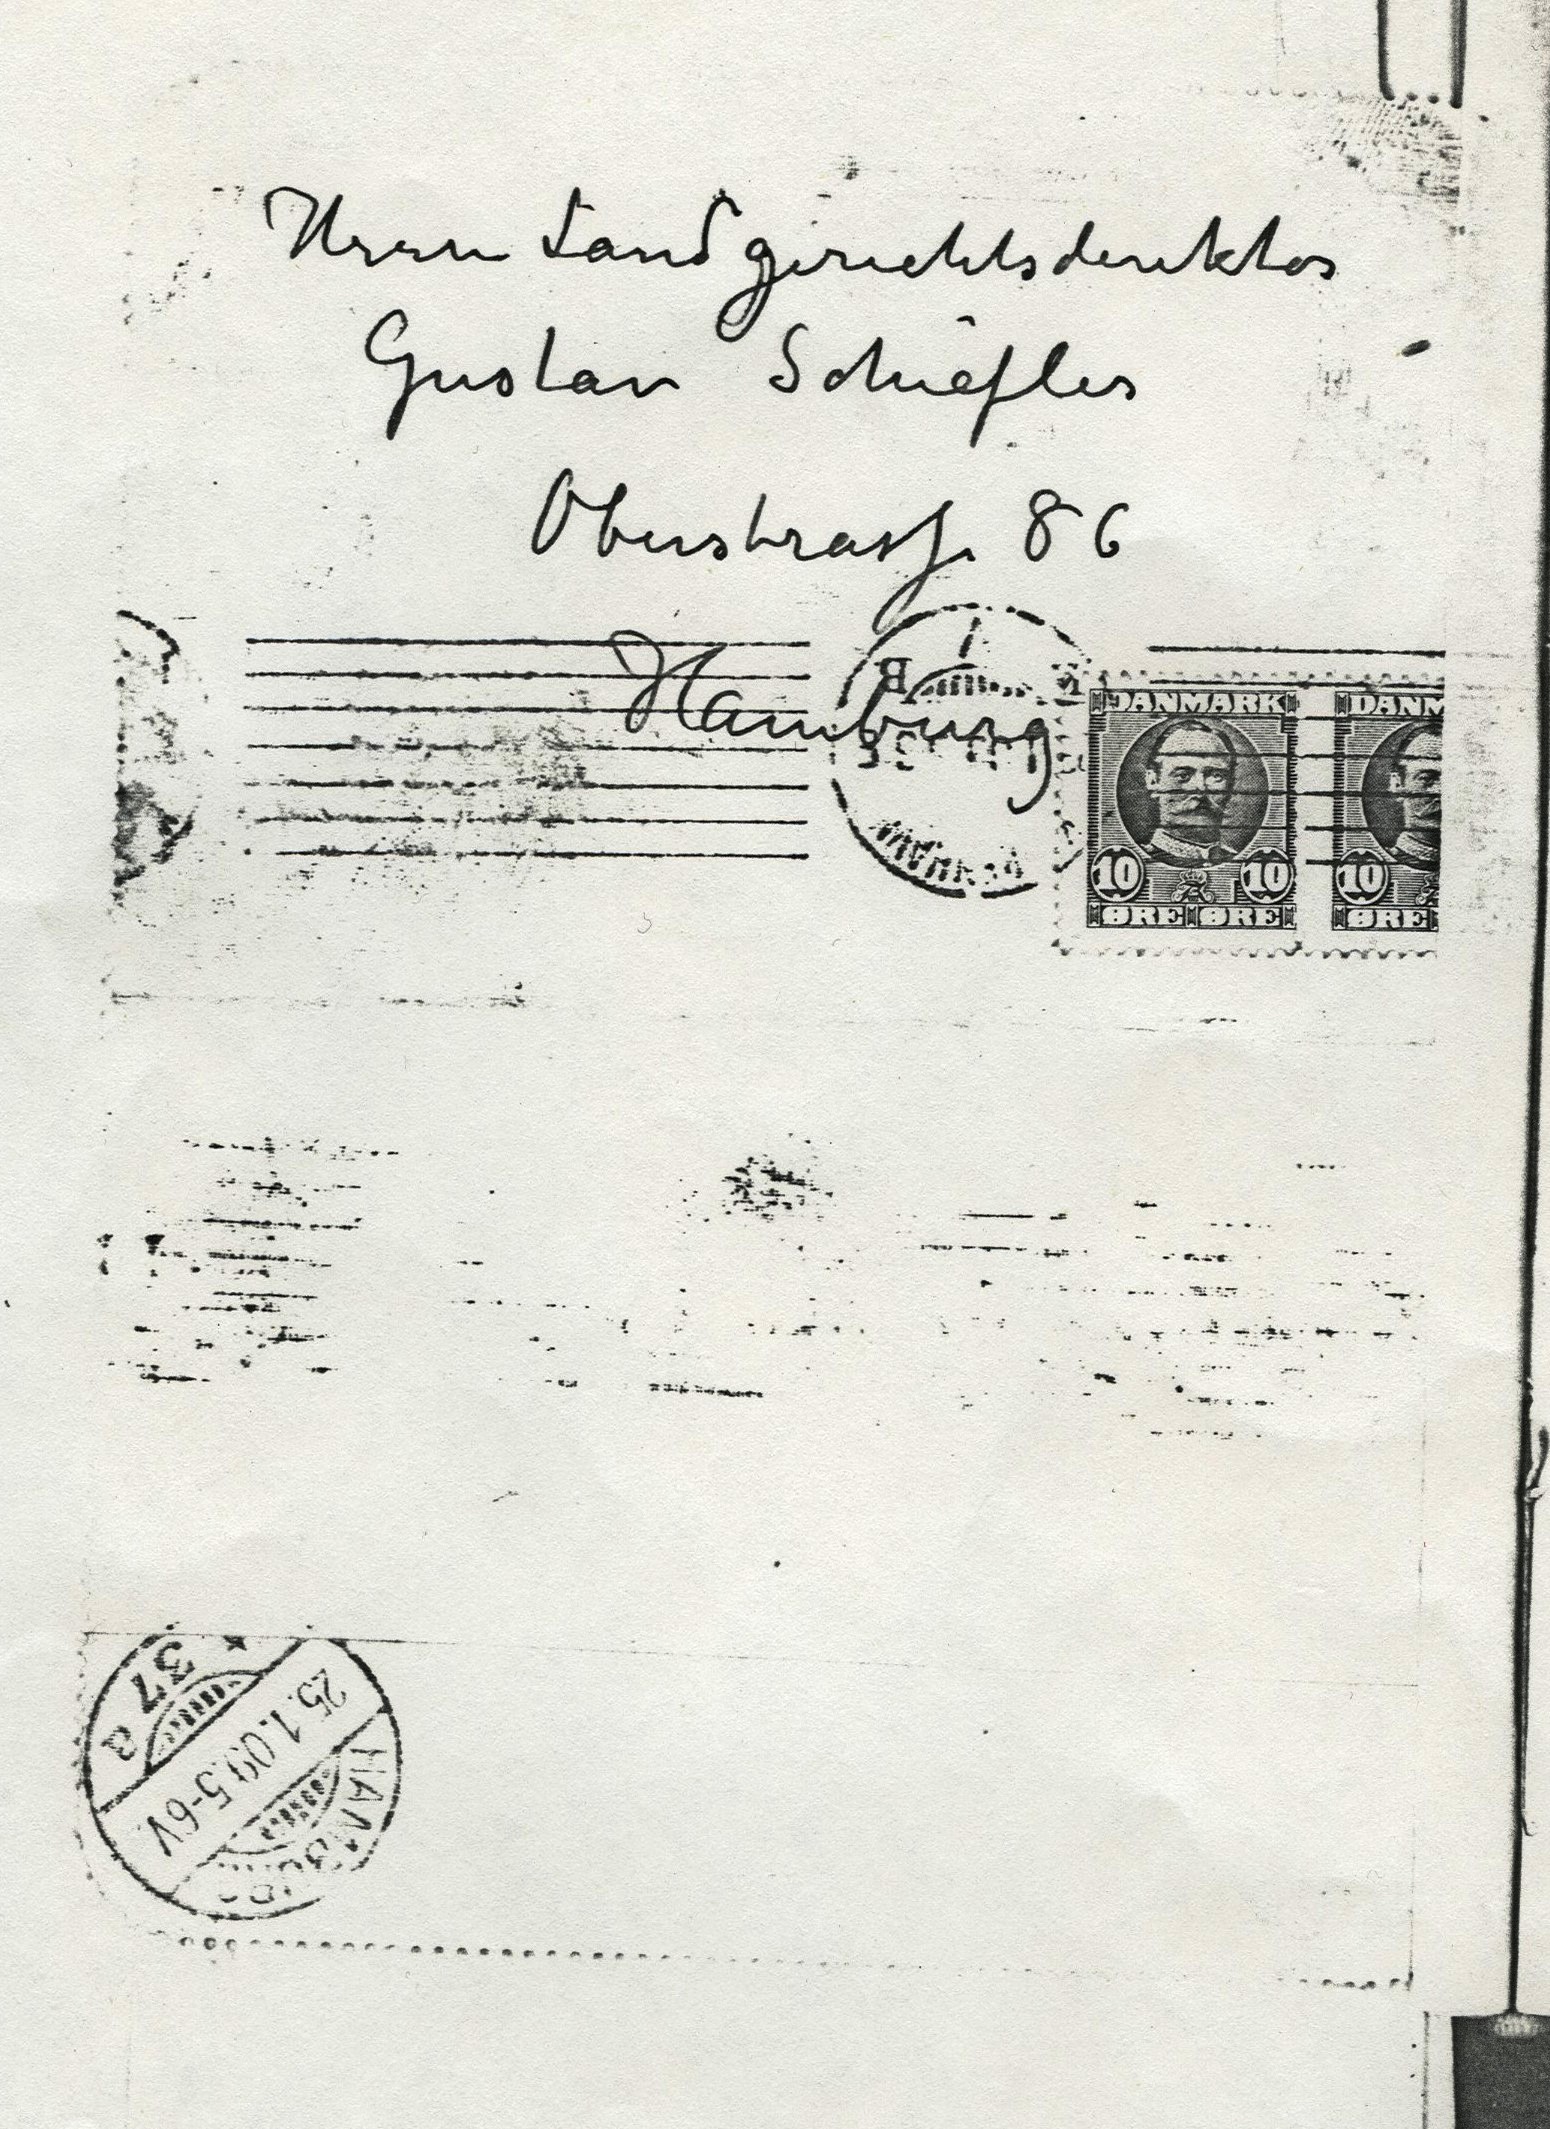 Herrn Landgerichtsdirektor
Gustav Schiefler
Oberstrasse 86
Hamburg
B
DANMARK
10 10
ØRE ØRE
DANM
10
ØRE
37a
25.1.09.5-6V.
HAMBURG